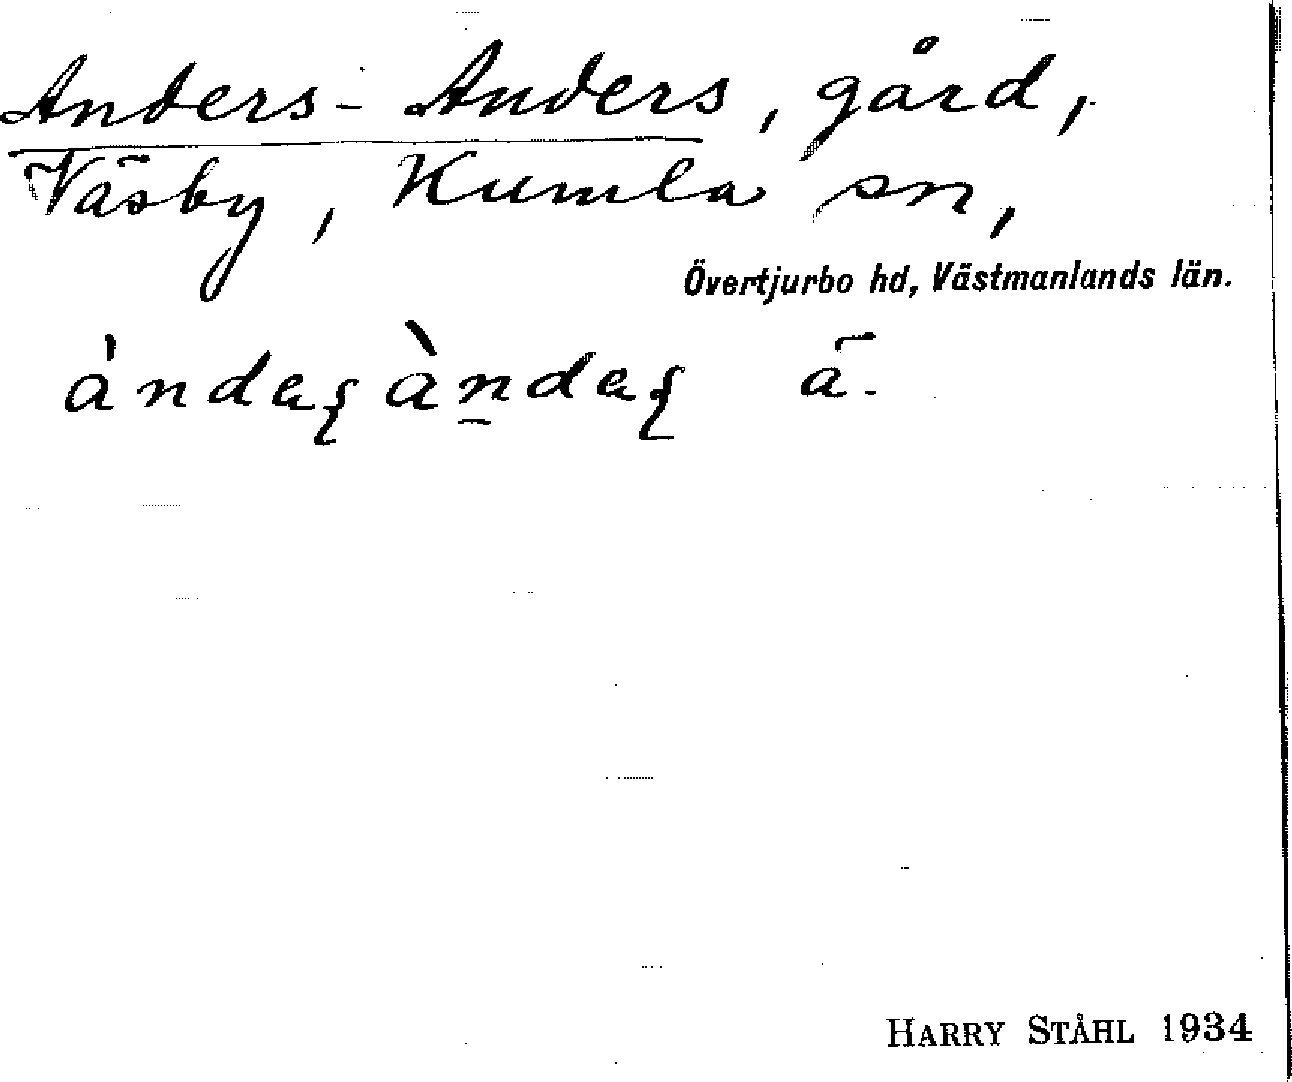 Anders-Anders, gård,
Väsby, Kumla sn,
Övertjurbo hd, Västmanlands län.
ȧndaʂ àn̠daʂ ā-
HARRY STÅHL 1934